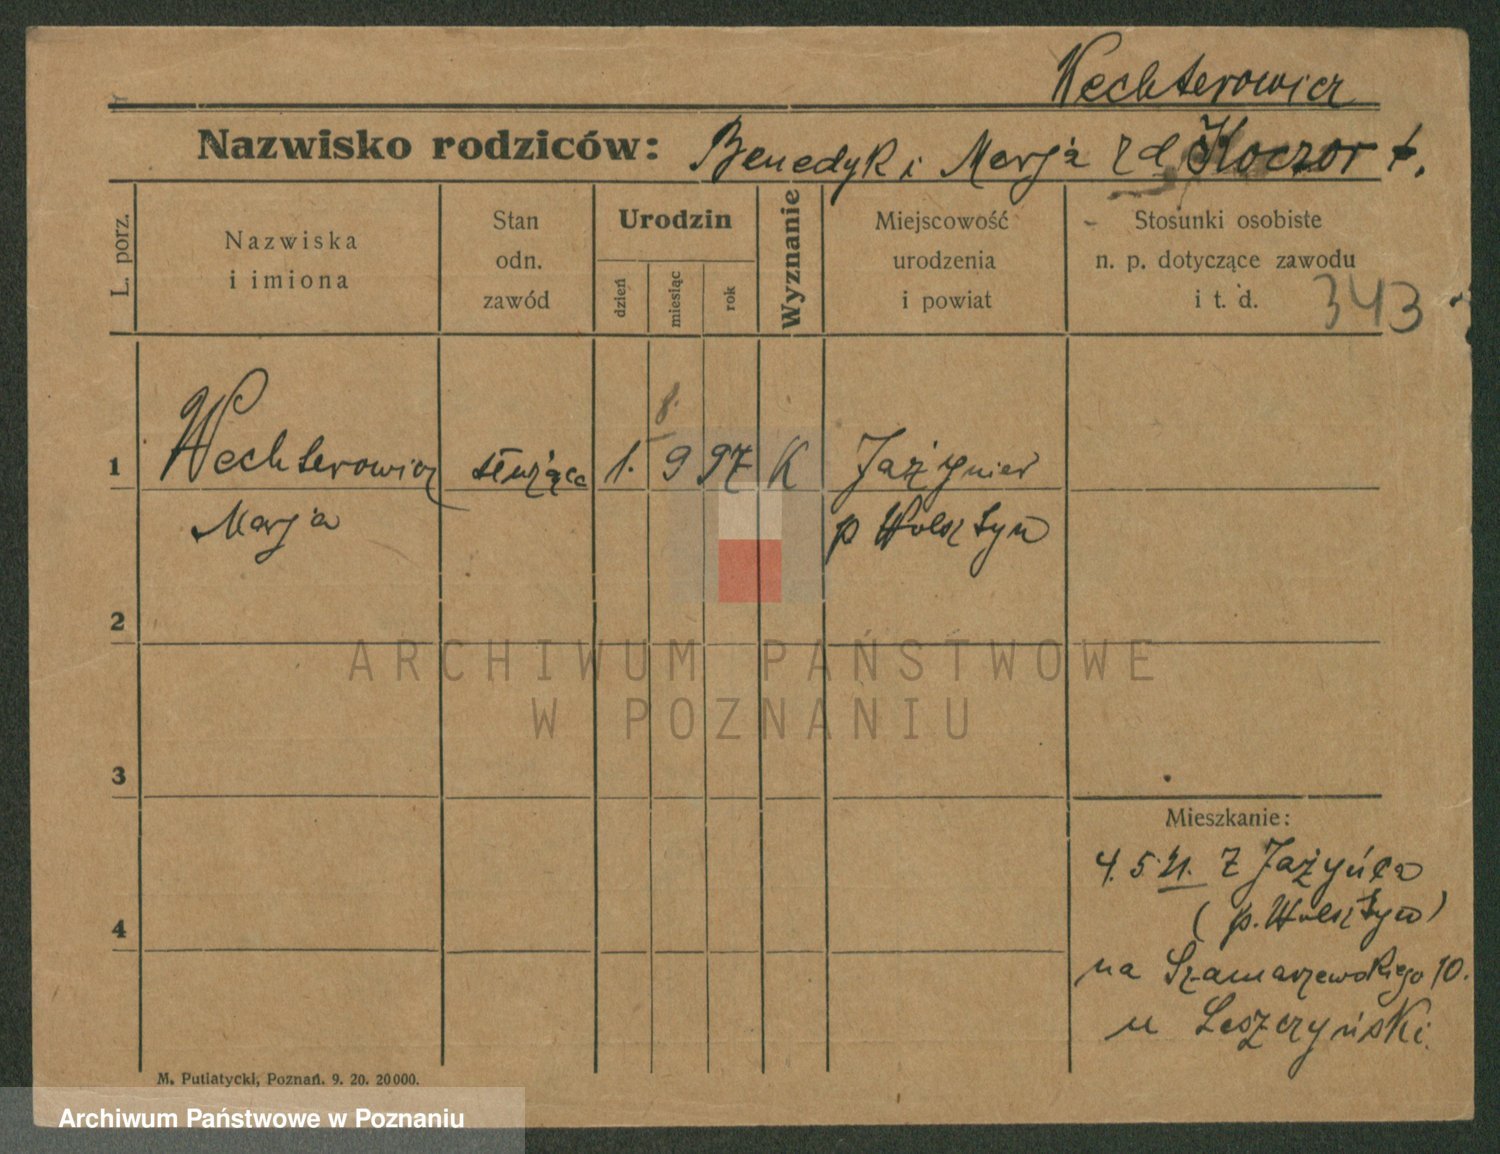 Wechterowicz
Nazwisko rodziców: Benedyk i Marja zd Koczor t.
L. porz.
Nazwiska
i imiona
Stan
odn.
zawód
Urodzin
dzień
miesiąc
rok
Wyznanie
Miejscowość
urodzenia
i powiat
Stosunki osobiste
n. p. dotyczące zawodu
i t. d.
343
8.
1 Wechterowicz służąca 1. 9 97 K Jażyniec
Marja p Wolsztyn
2
ARCHIWUM PAŃSTWOWE
W POZNANIU
3
Mieszkanie:
4. 5. 21. Z Jażyńca
4
(p. Wolsztyn)
na Szamarzewskiego 10.
u Leszczyński.
M. Putiatycki, Poznań. 9. 20. 20000.
Archiwum Państwowe w Poznaniu